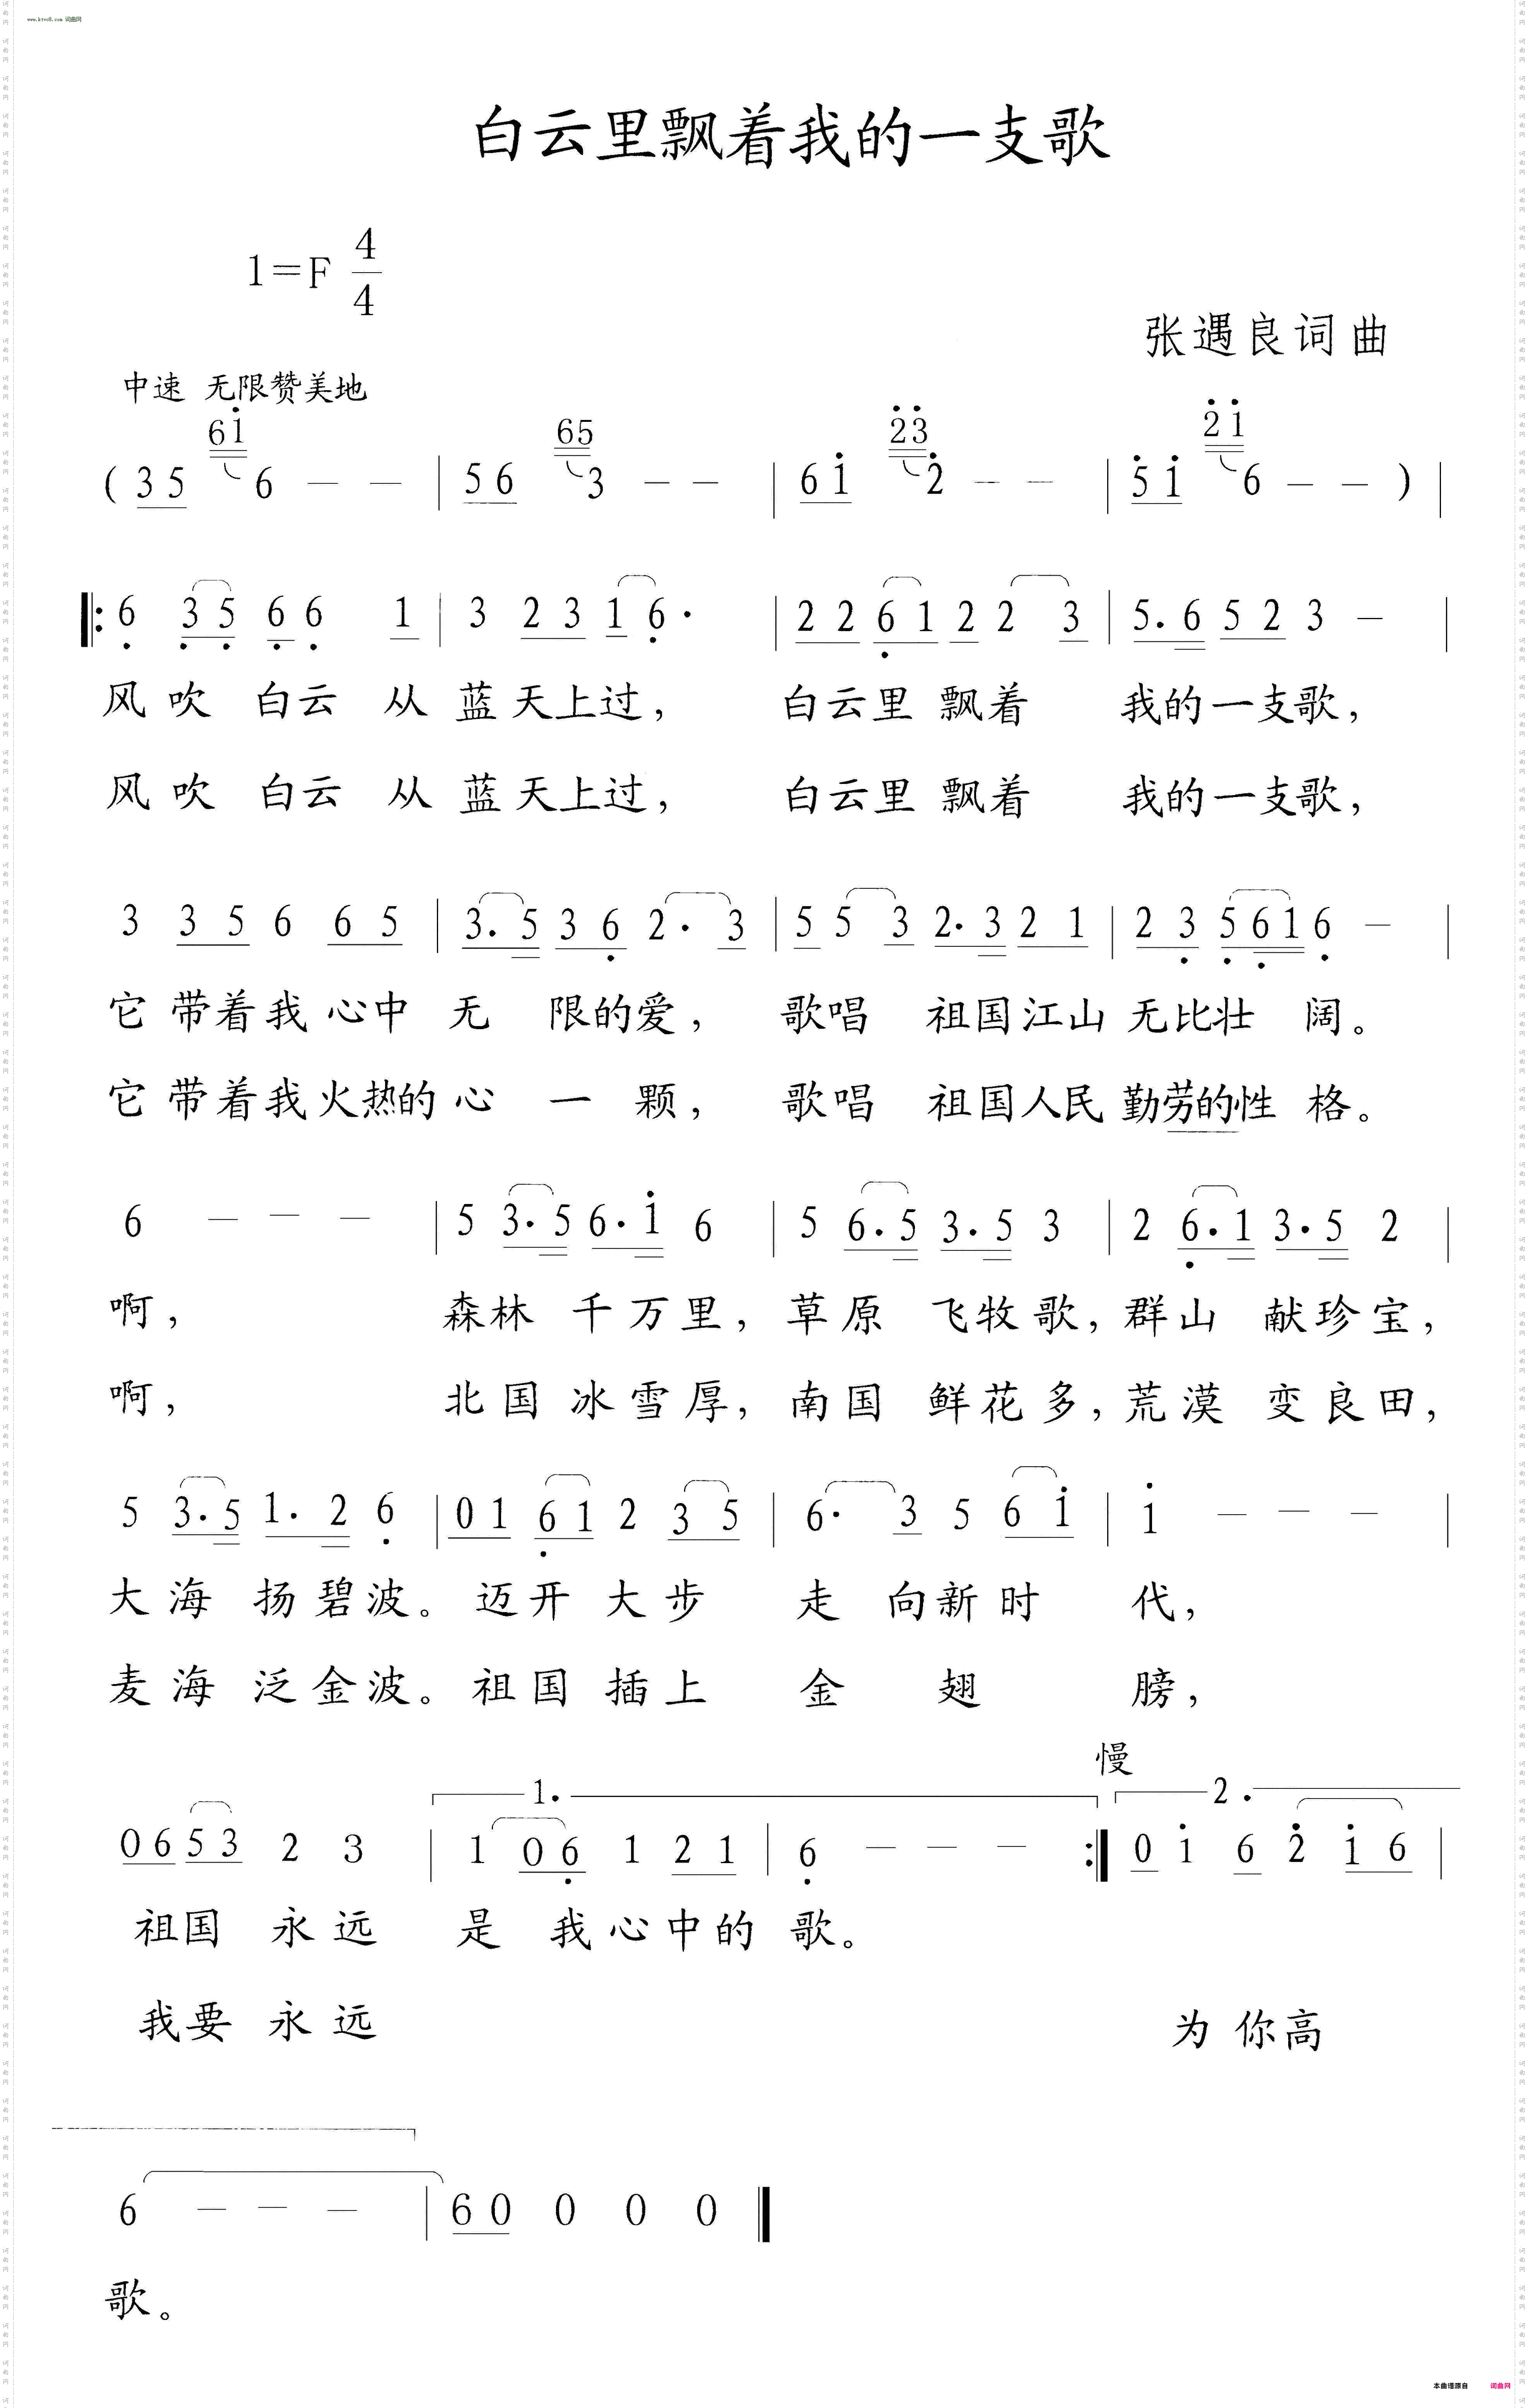 www.ktvc8.com 词曲网
白云里飘着我的一支歌
1=F 4/4
张遇良词曲
中速 无限赞美地
6i 65 23 21
( 35 6 — — | 56 3 — — | 6i 2 — — | 5i 6 — — ) |
6 35 66 1 | 3 23 16· | 22 61 22 3 | 5.6 52 3 — |
风吹 白云 从 蓝天上过， 白云里飘着 我的一支歌，
风吹 白云 从 蓝天上过， 白云里飘着 我的一支歌，
3 35 6 65 | 3.5 36 2· 3 | 55 3 2·3 21 | 23 561 6 — |
它带着我心中 无 限的爱， 歌唱 祖国江山 无比壮 阔。
它带着我火热的 心 一 颗， 歌唱 祖国人民 勤劳的性 格。
6 — — — | 5 3·5 6·i 6 | 5 6.5 3.5 3 | 2 6.1 3·5 2 |
啊， 森林 千万里，草原 飞牧歌，群山 献珍宝，
啊， 北国 冰雪厚，南国 鲜花多，荒漠 变良田，
5 3·5 1.2 6 | 01 61 2 35 | 6· 3 5 6i | i — — — |
大海 扬碧波。迈开 大步 走 向新时 代，
麦海 泛金波。祖国 插上 金 翅 膀，
慢
1. 2.
06 53 2 3 | 1 06 1 21 | 6 — — — :| 0 i 6 2 i6 |
祖国 永远 是 我心中的 歌。
我要 永远 为 你高
6 — — — | 60 0 0 0
歌。
本曲谱源自 词曲网